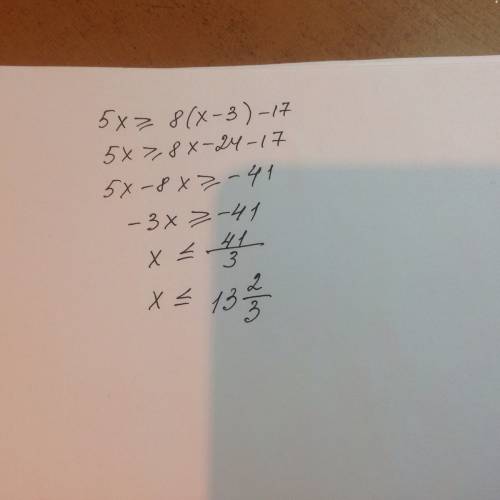 5x ≥ 8(x-3)-17
5x ≥ 8x-24-17
5x-8x ≥ -41
-3x ≥ -41
x ≤ 41/3
x ≤ 13 2/3